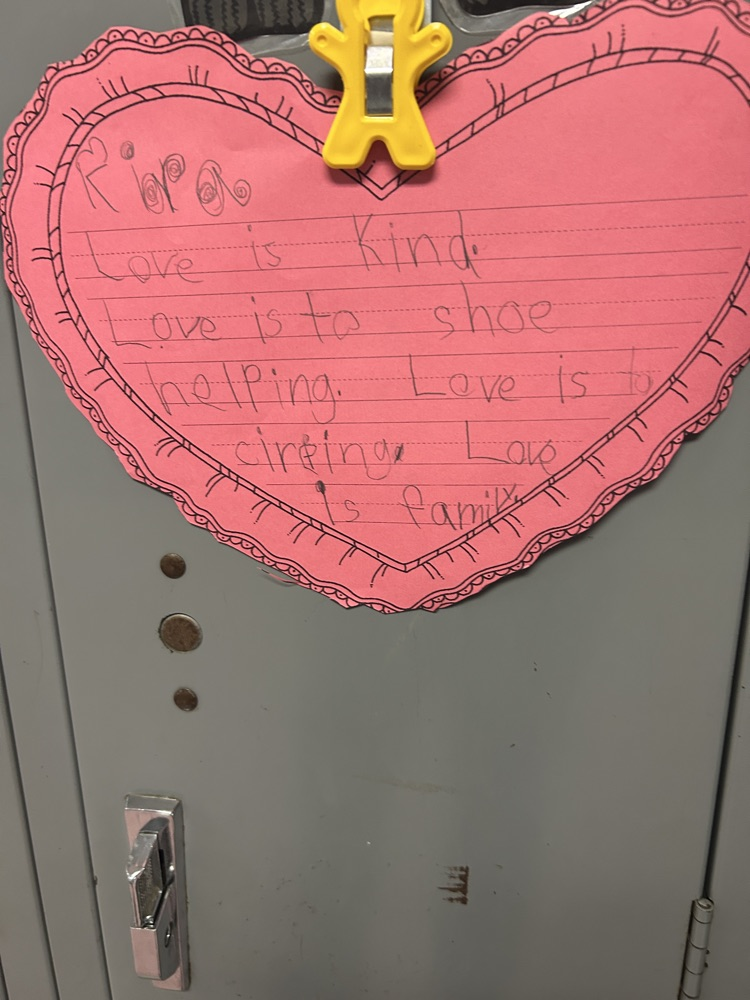 Kira
Love is Kind.
Love is to shoe
helping. Love is to
cirəing. Love
is family